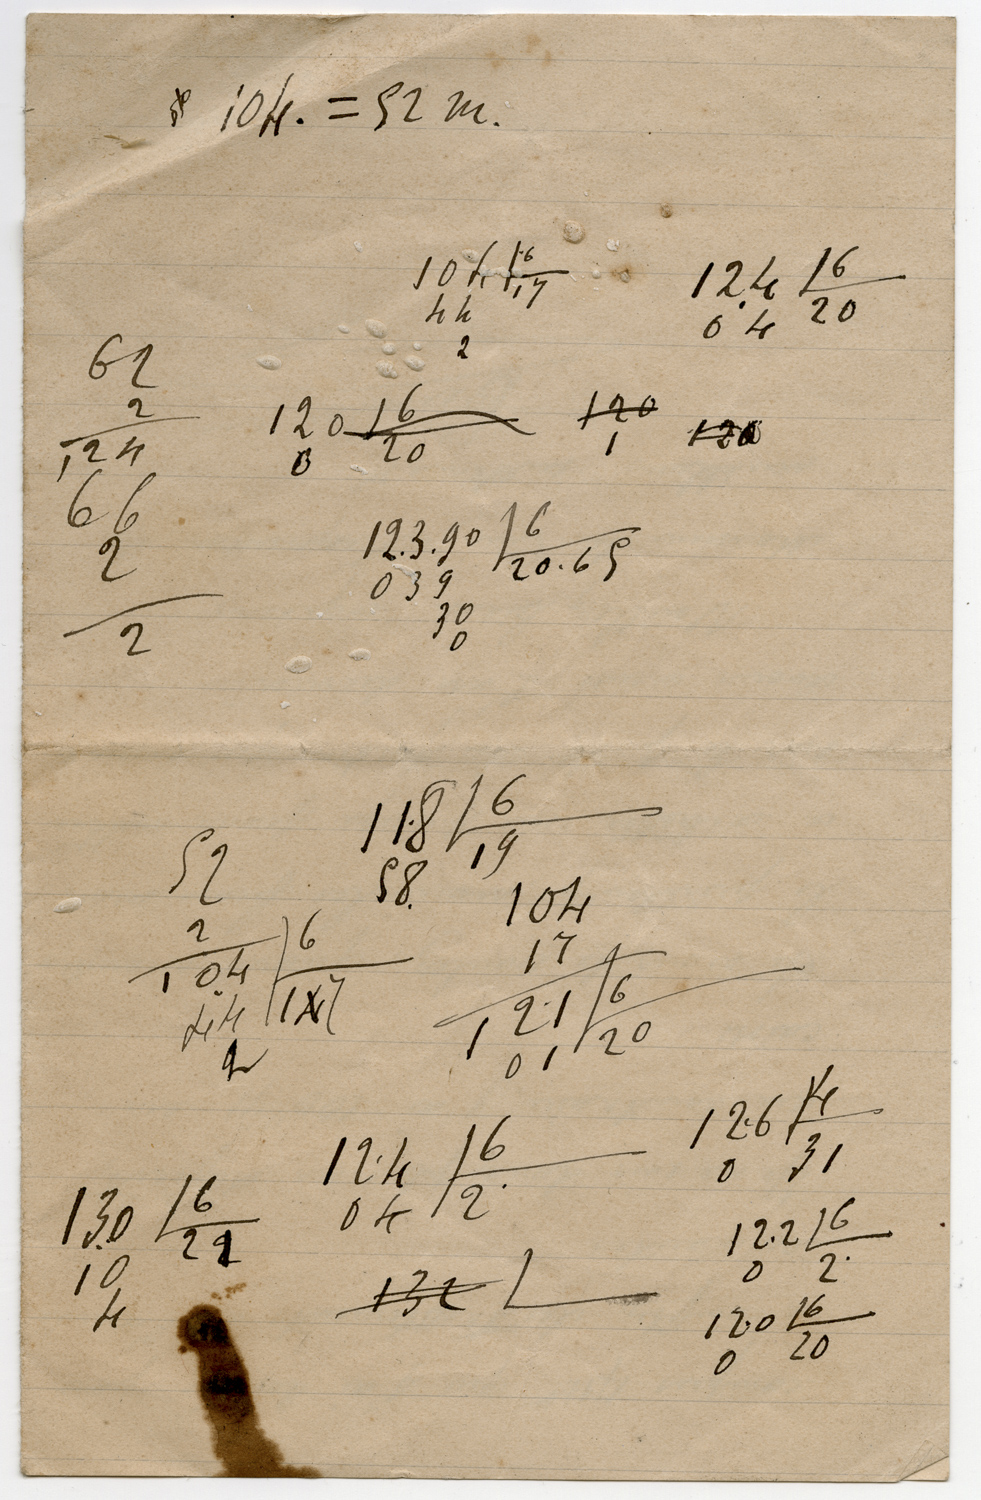 104. = 52 m.
104 16
44 17
2
124 16
04 20
62
2
124
66
2
2
120 16
0 20
120
1
120
123.90 6
039 20.65
30
0
118 6
58. 19
52
2
104 6
44 17
2
104
17
121 6
01 20
126 4
0 31
124 6
04 2.
122 6
0 2.
130 6
10 21
4
132
120 6
0 20